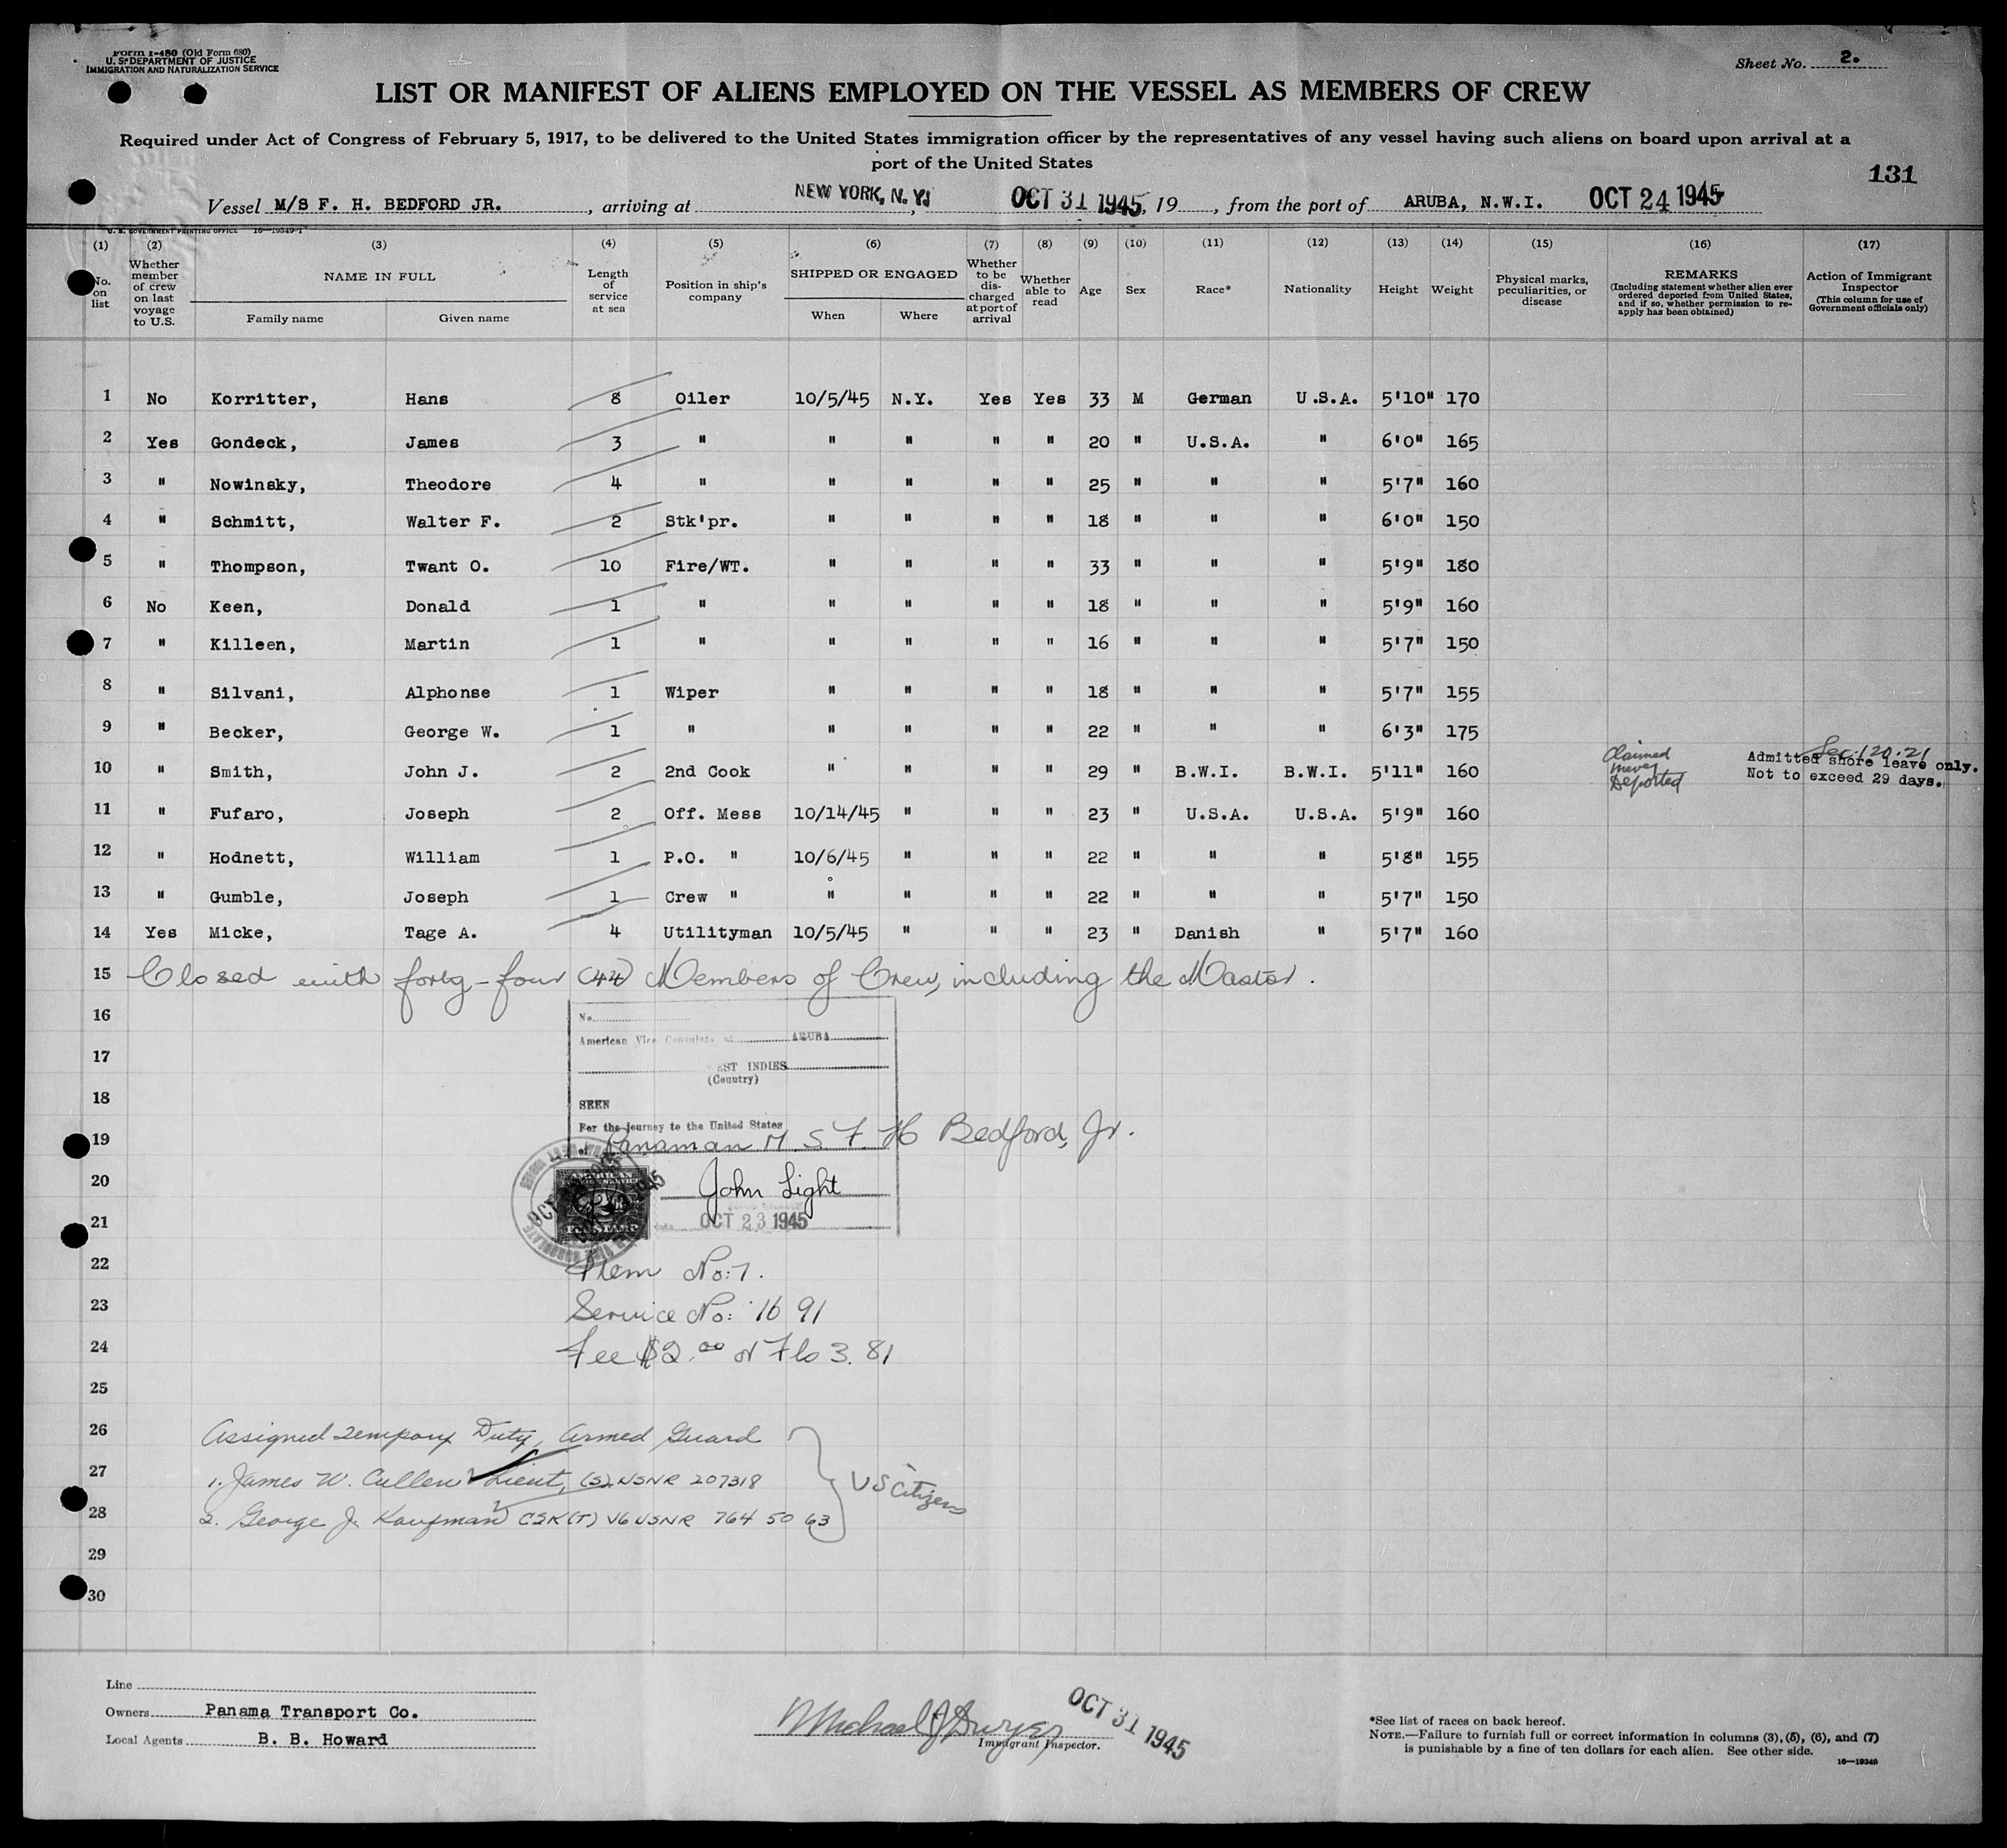 Form I-480 (Old Form 680)
U. S. DEPARTMENT OF JUSTICE
IMMIGRATION AND NATURALIZATION SERVICE
Sheet No. 2.
LIST OR MANIFEST OF ALIENS EMPLOYED ON THE VESSEL AS MEMBERS OF CREW
Required under Act of Congress of February 5, 1917, to be delivered to the United States immigration officer by the representatives of any vessel having such aliens on board upon arrival at a
port of the United States
131
Vessel M/S F. H. BEDFORD JR., arriving at NEW YORK, N. Y. OCT 31 1945, 19, from the port of ARUBA, N.W.I. OCT 24 1945
U. S. GOVERNMENT PRINTING OFFICE 16—19349-1
(1) (2) (3) (4) (5) (6) (7) (8) (9) (10) (11) (12) (13) (14) (15) (16) (17)
No. on list
Whether member of crew on last voyage to U.S.
NAME IN FULL
Family name Given name
Length of service at sea
Position in ship's company
SHIPPED OR ENGAGED
When Where
Whether to be discharged at port of arrival
Whether able to read
Age Sex Race* Nationality Height Weight
Physical marks, peculiarities, or disease
REMARKS
(Including statement whether alien ever ordered deported from United States, and if so, whether permission to re-apply has been obtained)
Action of Immigrant Inspector
(This column for use of Government officials only)
1 No Korritter, Hans 8 Oiler 10/5/45 N.Y. Yes Yes 33 M German U.S.A. 5'10" 170
2 Yes Gondeck, James 3 " " " " " 20 " U.S.A. " 6'0" 165
3 " Nowinsky, Theodore 4 " " " " " 25 " " " 5'7" 160
4 " Schmitt, Walter F. 2 Stk'pr. " " " " 18 " " " 6'0" 150
5 " Thompson, Twant O. 10 Fire/WT. " " " " 33 " " " 5'9" 180
6 No Keen, Donald 1 " " " " " 18 " " " 5'9" 160
7 " Killeen, Martin 1 " " " " " 16 " " " 5'7" 150
8 " Silvani, Alphonse 1 Wiper " " " " 18 " " " 5'7" 155
9 " Becker, George W. 1 " " " " " 22 " " " 6'3" 175
10 " Smith, John J. 2 2nd Cook " " " " 29 " B.W.I. B.W.I. 5'11" 160 Claimed never Deported Sec. 120.21 Admitted shore leave only. Not to exceed 29 days.
11 " Fufaro, Joseph 2 Off. Mess 10/14/45 " " " 23 " U.S.A. U.S.A. 5'9" 160
12 " Hodnett, William 1 P.O. " 10/6/45 " " " 22 " " " 5'8" 155
13 " Gumble, Joseph 1 Crew " " " " " 22 " " " 5'7" 150
14 Yes Micke, Tage A. 4 Utilityman 10/5/45 " " " 23 " Danish " 5'7" 160
15 Closed with forty-four (44) Members of Crew, including the Master.
16
No.
American Vice Consulate at ARUBA
17
EST INDIES
(Country)
18
SEEN
For the journey to the United States
19
of Panaman M. S F. H Bedford, Jr.
20
John Light
21
OCT 23 1945
22 Item No: 7.
23 Service No: 1691
24 Fee $2.00 or Fls 3.81
25
26 Assigned Tempory Duty, Armed Guard
27 1. James W. Cullen Lieut, (S) USNR 207318
US Citizens
28 2. George J. Kaufman CSK(T) V6 USNR 764 50 63
29
30
Line
Owners Panama Transport Co.
Local Agents B. B. Howard
Michael J Dwyer
Immigrant Inspector.
OCT 31 1945
*See list of races on back hereof.
NOTE.—Failure to furnish full or correct information in columns (3), (5), (6), and (7)
is punishable by a fine of ten dollars for each alien. See other side.
16—19349